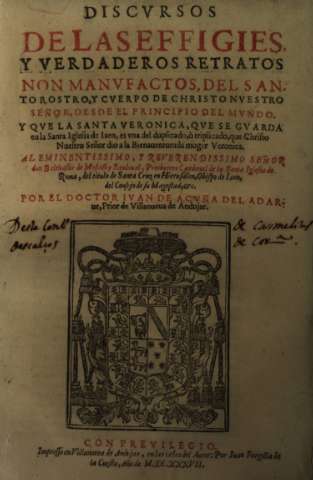 DISCVRSOS
DE LAS EFFIGIES,
Y VERDADEROS RETRATOS
NON MANVFACTOS, DEL SAN-
TO ROSTRO, Y CVERPO DE CHRISTO NVESTRO
SEÑOR, DESDE EL PRINCIPIO DEL MVNDO.
Y QVE LA SANTA VERONICA, QVE SE GVARDA
en la Santa Iglesia de Iaen, es vna del duplicado, ò triplicado, que Christo
Nuestro Señor dio a la Bienauenturada muger Veronica.
AL EMINENTISSIMO, Y REVERENDISSIMO SEÑOR
don Balthasar de Moscoso y Sandoual, Presbytero Cardenal de la Santa Iglesia de
Roma, del titulo de Santa Cruz en Hierusalem, Obispo de Iaen,
del Consejo de su Magestad, etc.
POR EL DOCTOR IVAN DE ACVÑA DEL ADAR-
ue, Prior de Villanueua de Andujar.
Deste Conto de Carmelitas
Descalços de Cor
CON PREVILEGIO.
Impresso en Villanueua de Andujar, en las casas del Autor: Por Iuan Furgolla de
la Cuesta, Año de M.DC.XXXVII.